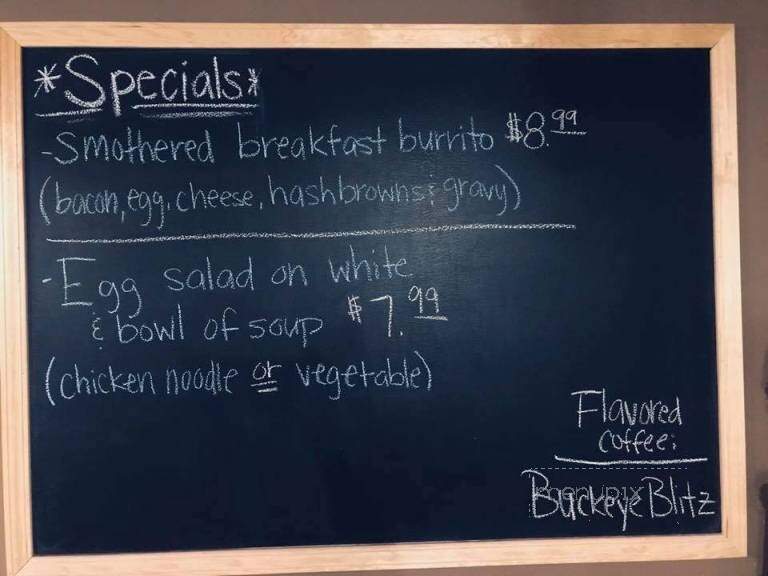 *Specials*
-Smothered breakfast burrito $8.99
(bacon, egg, cheese, hashbrowns & gravy)
-Egg salad on white
& bowl of soup $7.99
(chicken noodle or vegetable)
Flavored
coffee:
menupix
Buckeye Blitz